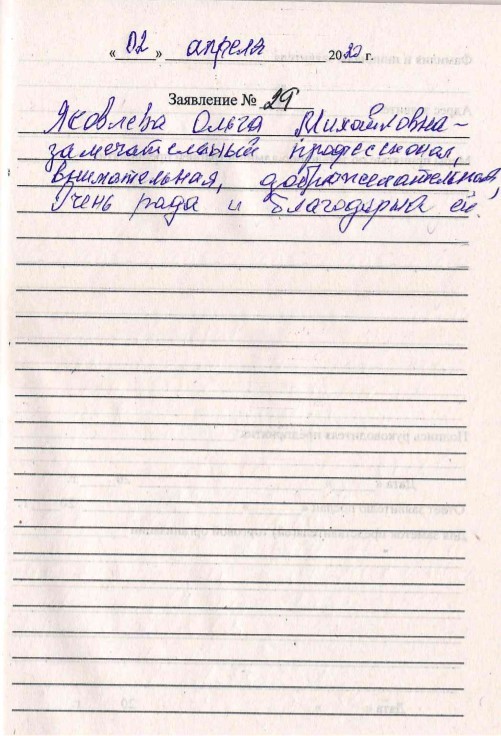 « 02 » апреля 2020 г.
Заявление № 29
Яковлева Ольга Михайловна -
замечательный профессионал,
внимательная, доброжелательная,
Очень рада и благодарна ей